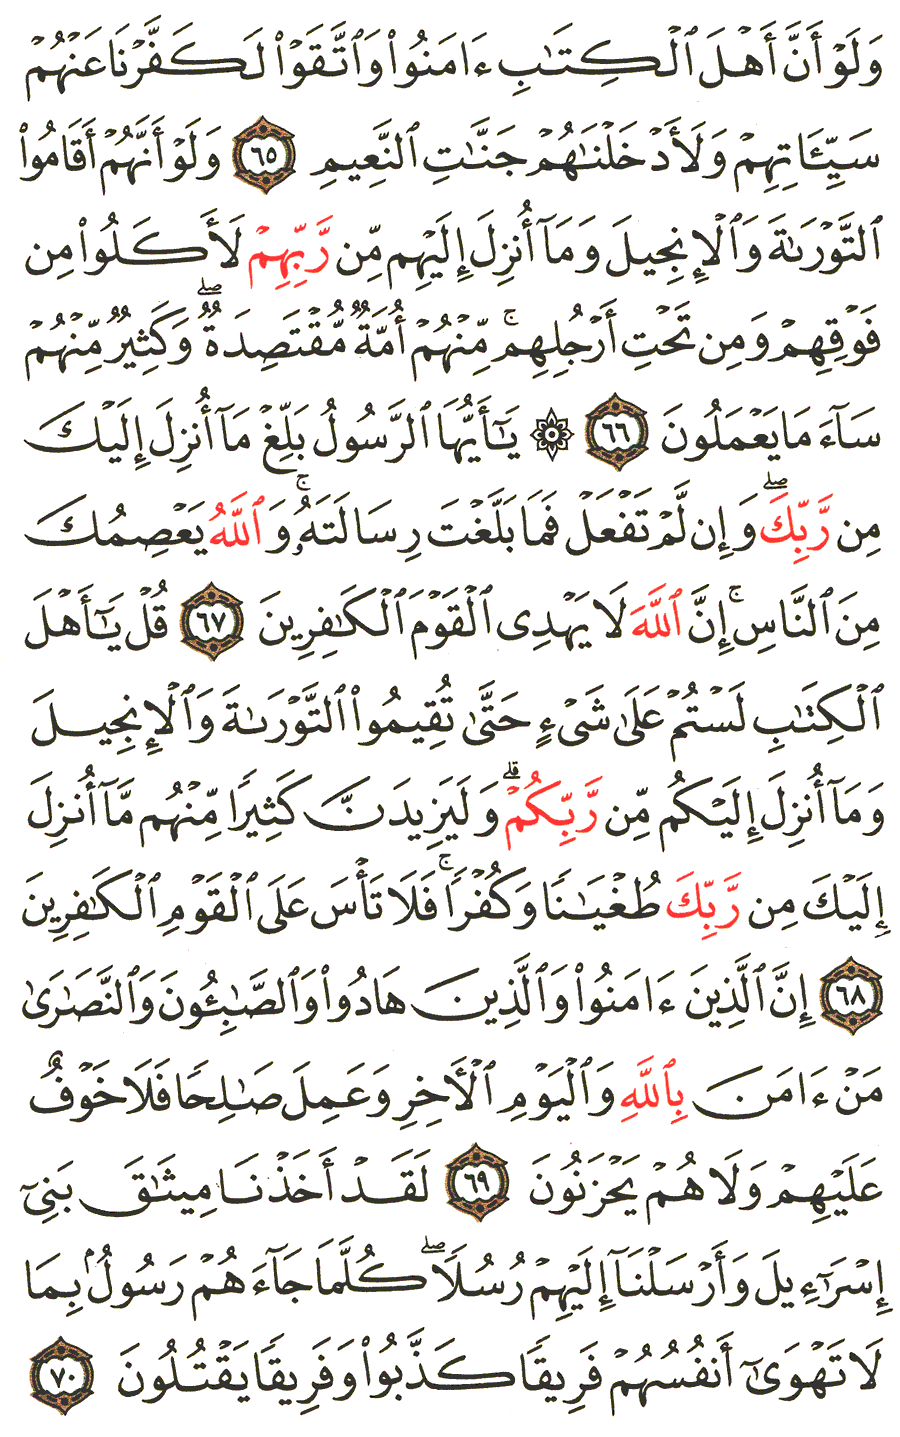 وَلَوْ أَنَّ أَهْلَ ٱلْكِتَٰبِ ءَامَنُوا۟ وَٱتَّقَوْا۟ لَكَفَّرْنَا عَنْهُمْ
سَيِّـَٔاتِهِمْ وَلَأَدْخَلْنَٰهُمْ جَنَّٰتِ ٱلنَّعِيمِ ٦٥ وَلَوْ أَنَّهُمْ أَقَامُوا۟
ٱلتَّوْرَىٰةَ وَٱلْإِنجِيلَ وَمَآ أُنزِلَ إِلَيْهِم مِّن رَّبِّهِمْ لَأَكَلُوا۟ مِن
فَوْقِهِمْ وَمِن تَحْتِ أَرْجُلِهِم ۚ مِّنْهُمْ أُمَّةٌ مُّقْتَصِدَةٌ ۖ وَكَثِيرٌ مِّنْهُمْ
سَآءَ مَا يَعْمَلُونَ ٦٦ ۞ يَٰٓأَيُّهَا ٱلرَّسُولُ بَلِّغْ مَآ أُنزِلَ إِلَيْكَ
مِن رَّبِّكَ ۖ وَإِن لَّمْ تَفْعَلْ فَمَا بَلَّغْتَ رِسَالَتَهُۥ ۚ وَٱللَّهُ يَعْصِمُكَ
مِنَ ٱلنَّاسِ ۚ إِنَّ ٱللَّهَ لَا يَهْدِى ٱلْقَوْمَ ٱلْكَٰفِرِينَ ٦٧ قُلْ يَٰٓأَهْلَ
ٱلْكِتَٰبِ لَسْتُمْ عَلَىٰ شَىْءٍ حَتَّىٰ تُقِيمُوا۟ ٱلتَّوْرَىٰةَ وَٱلْإِنجِيلَ
وَمَآ أُنزِلَ إِلَيْكُم مِّن رَّبِّكُمْ ۗ وَلَيَزِيدَنَّ كَثِيرًا مِّنْهُم مَّآ أُنزِلَ
إِلَيْكَ مِن رَّبِّكَ طُغْيَٰنًا وَكُفْرًا ۚ فَلَا تَأْسَ عَلَى ٱلْقَوْمِ ٱلْكَٰفِرِينَ
٦٨ إِنَّ ٱلَّذِينَ ءَامَنُوا۟ وَٱلَّذِينَ هَادُوا۟ وَٱلصَّٰبِـُٔونَ وَٱلنَّصَٰرَىٰ
مَنْ ءَامَنَ بِٱللَّهِ وَٱلْيَوْمِ ٱلْأَخِرِ وَعَمِلَ صَٰلِحًا فَلَا خَوْفٌ
عَلَيْهِمْ وَلَا هُمْ يَحْزَنُونَ ٦٩ لَقَدْ أَخَذْنَا مِيثَٰقَ بَنِىٓ
إِسْرَٰٓءِيلَ وَأَرْسَلْنَآ إِلَيْهِمْ رُسُلًا ۖ كُلَّمَا جَآءَهُمْ رَسُولٌۢ بِمَا
لَا تَهْوَىٰٓ أَنفُسُهُمْ فَرِيقًا كَذَّبُوا۟ وَفَرِيقًا يَقْتُلُونَ ٧٠